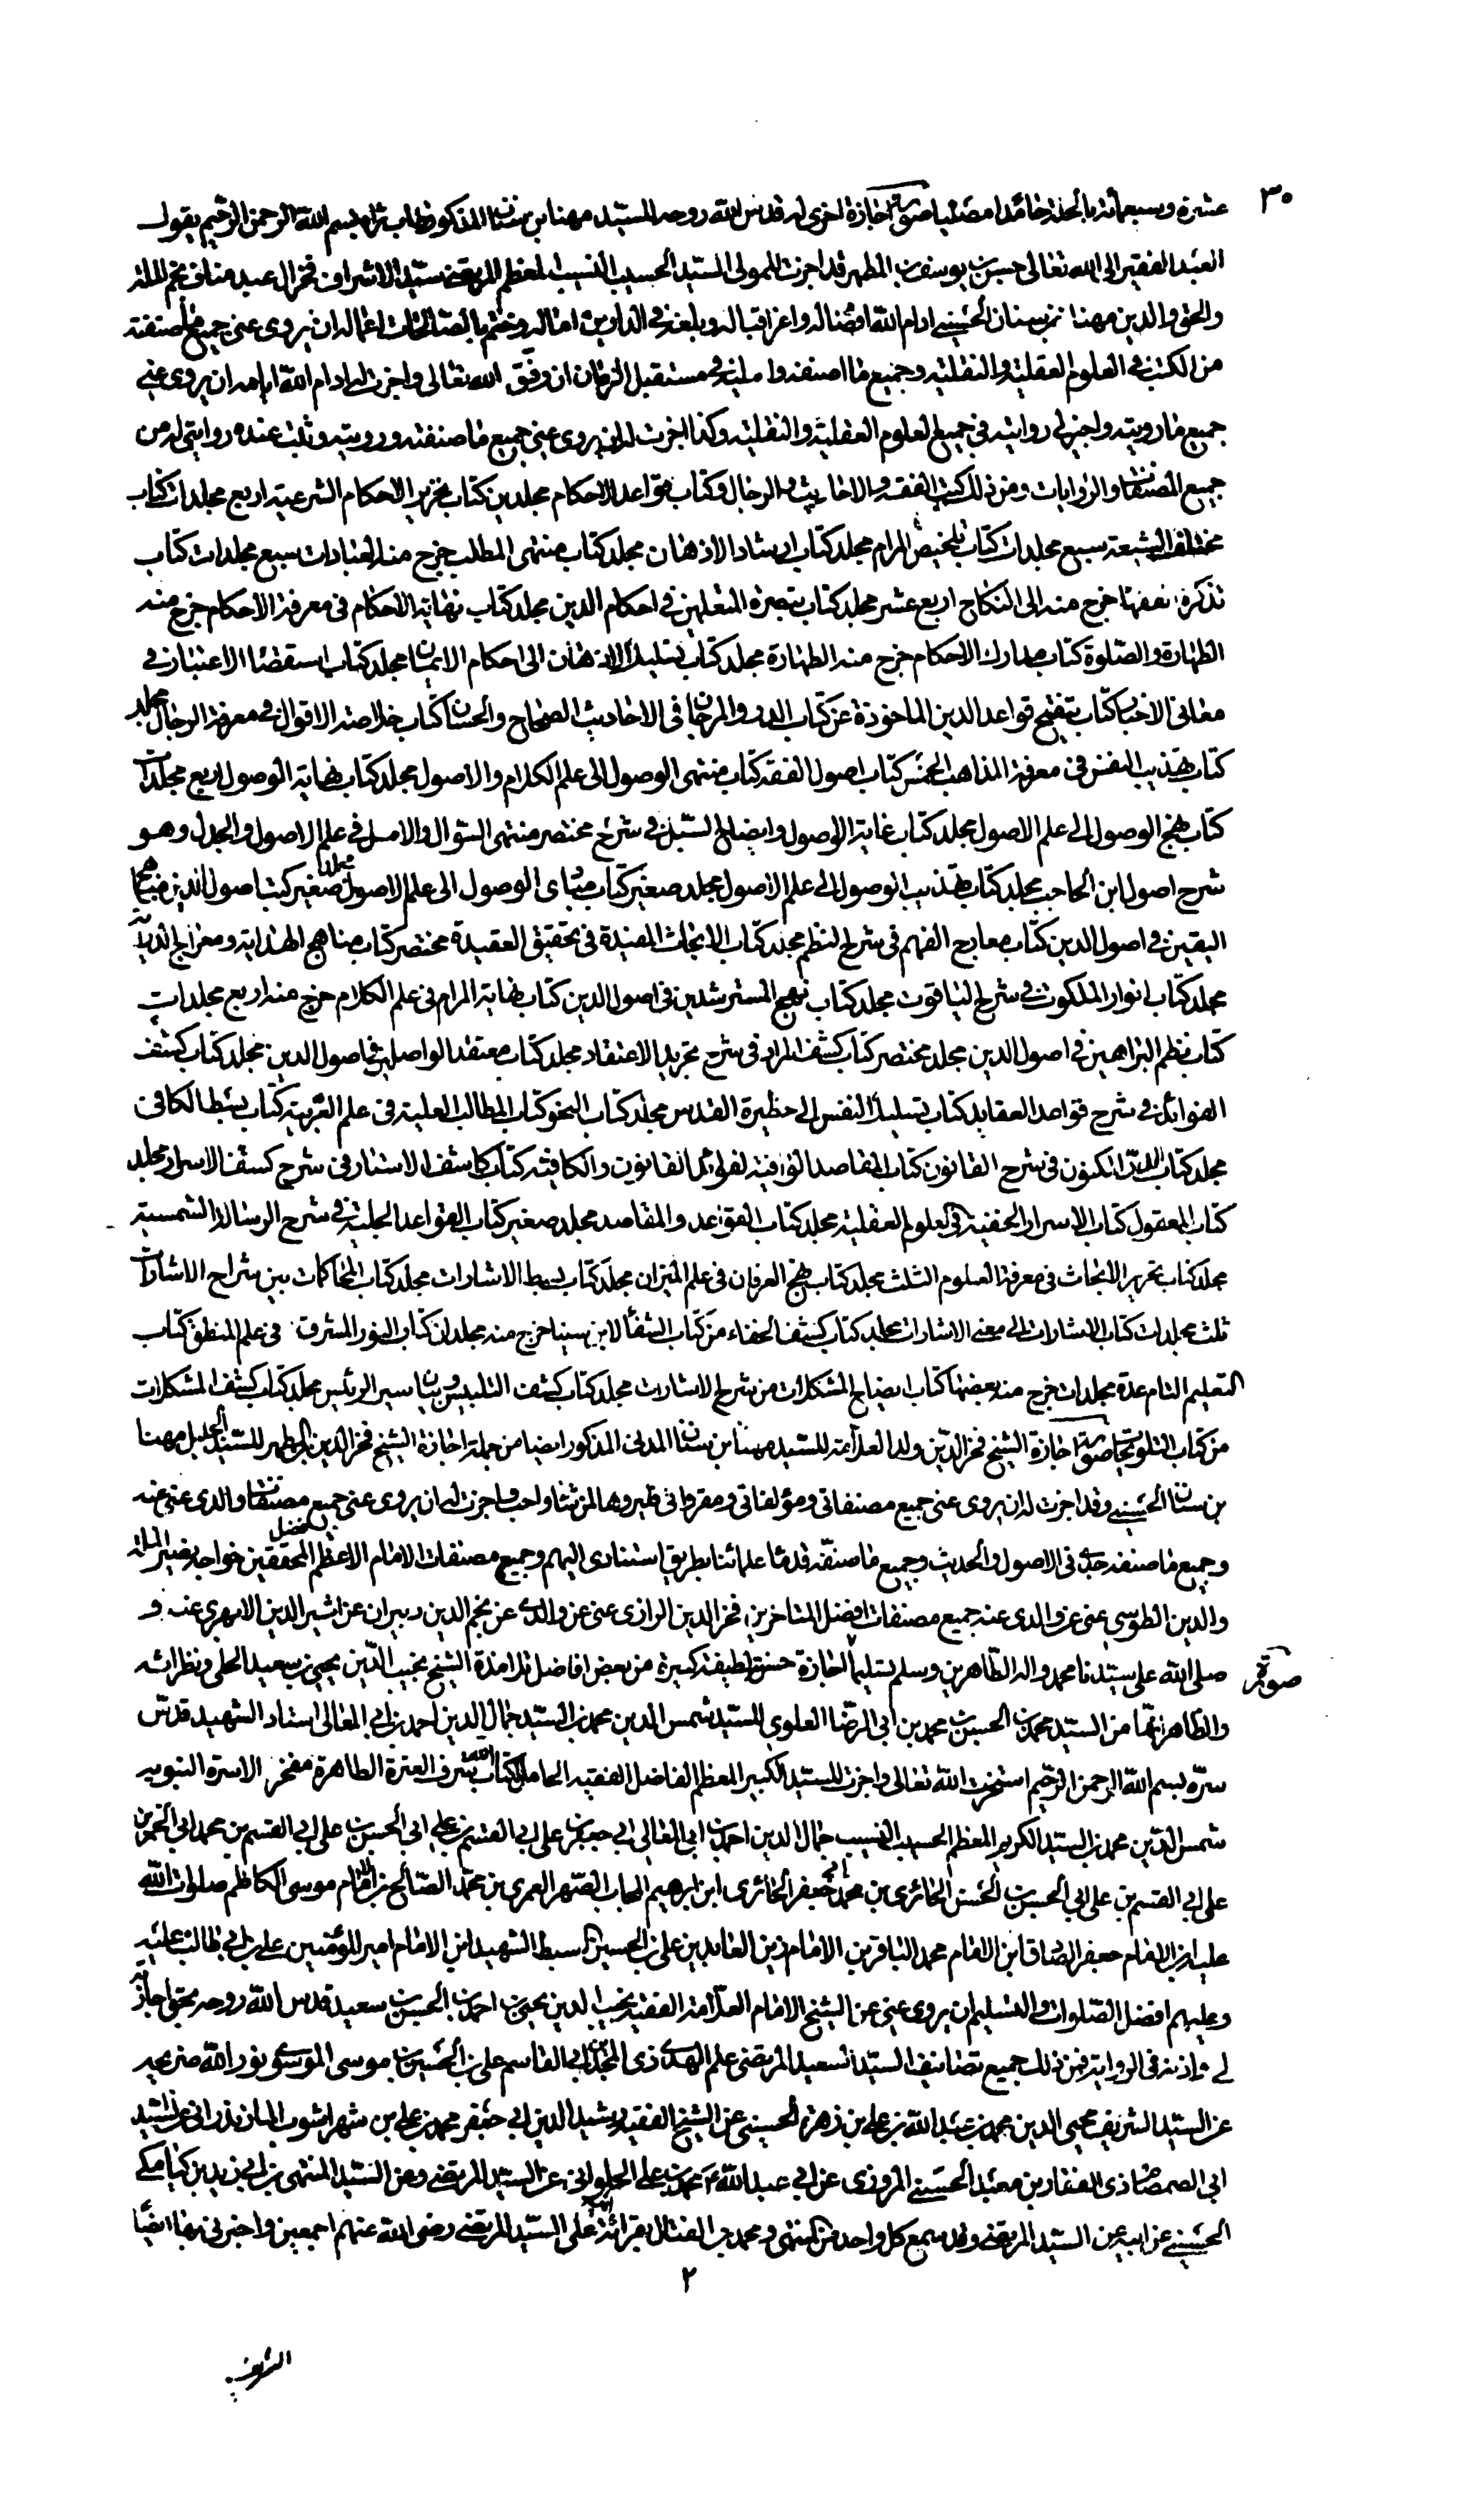 ٣٠
عشرة وسبعمائة بالحلة حامدا مصليا صورة اجازة اخرى له قدس الله روحه للسيد مهنا بن سنان المذكور طاب ثراه بسم الله الرحمن الرحيم يقول
العبد الفقير الى الله تعالى حسن بن يوسف بن المطهر قد اجزت للمولى السيد الحسيب النسيب المعظم المرتضى سيد الاشراف فخر ال عبد مناف نجم الملة
والحق والدين مهنا بن سنان الحسيني ادام الله افضاله واعز اقباله وبلغه في الدارين اماله وختم بالصالحات اعماله ان يروى عني جميع ما صنفته
من الكتب في العلوم العقلية والنقلية وجميع ما اصنفه وامليه في مستقبل الزمان ان وفق الله تعالى واجزت له ادام الله ايامه ان يروى عني
جميع ما رويته واجيز لى روايته في جميع العلوم العقلية والنقلية وكذا اجزت له ان يروى عني جميع ما صنفته ورويته وثبت عنده روايتي له من
جميع المصنفات والروايات ومن ذلك كتب الفقه والاحاديث والرجال وكتاب قواعد الاحكام مجلدين كتاب تحرير الاحكام الشرعية اربع مجلدات كتاب
مختلف الشيعة سبع مجلدات كتاب تلخيص المرام مجلد كتاب ارشاد الاذهان مجلد كتاب منتهى المطلب خرج منه العبادات سبع مجلدات كتاب
تذكرة الفقهاء خرج منه الى النكاح اربع عشر مجلد كتاب تبصرة المتعلمين في احكام الدين مجلد كتاب نهاية الاحكام في معرفة الاحكام خرج منه
الطهارة والصلوة كتاب مدارك الاحكام خرج منه الطهارة مجلد كتاب تسليك الاذهان الى احكام الايمان مجلد كتاب استقصاء الاعتبار في
معاني الاخبار كتاب تنقيح قواعد الدين الماخوذة عن كتاب الدر والمرجان في الاحاديث الصحاح والحسان كتاب خلاصة الاقوال في معرفة الرجال مجلد
كتاب تهذيب النفس في معرفة المذاهب الخمس كتاب اصول الفقه كتاب منتهى الوصول الى علم الكلام والاصول مجلد كتاب نهاية الوصول اربع مجلدات
كتاب نهج الوصول الى علم الاصول مجلد كتاب غاية الوصول وايضاح السبل في شرح مختصر منتهى السؤال والامل في علم الاصول والجدل وهو
شرح اصول ابن الحاجب مجلد كتاب تهذيب الوصول الى علم الاصول مجلد صغير كتاب مبادى الوصول الى علم الاصول مجلد صغير كتب اصول الدين منهاج
اليقين في اصول الدين كتاب معارج الفهم في شرح النظم مجلد كتاب الابحاث المفيدة في تحقيق العقيدة مختصر كتاب مناهج الهداية ومعراج الدراية
مجلد كتاب انوار الملكوت في شرح الياقوت مجلد كتاب نهج المسترشدين في اصول الدين كتاب نهاية المرام في علم الكلام خرج منه اربع مجلدات
كتاب نظم البراهين في اصول الدين مجلد مختصر كتاب كشف المراد في شرح تجريد الاعتقاد مجلد كتاب معتقد الواصلين في اصول الدين مجلد كتاب كشف
الفوائد في شرح قواعد العقايد كتاب تسليك النفس الى حظيرة القدس مجلد كتاب النحو كتاب المطالب العلية في علم العربية كتاب بسط الكافي
مجلد كتاب الدر المكنون في شرح القانون كتاب المقاصد الوافية لفوائد القانون والكافية كتاب كاشف الاستار في شرح كشف الاسرار مجلد
كتاب المعقول كتاب الاسرار الخفية في العلوم العقلية مجلد كتاب القواعد والمقاصد مجلد صغير كتاب القواعد الجلية في شرح الرسالة الشمسية
مجلد كتاب تحرير الابحاث في معرفة العلوم الثلث مجلد كتاب نهج العرفان في علم الميزان مجلد كتاب بسط الاشارات مجلد كتاب المحاكمات بين شراح الاشارات
ثلث مجلدات كتاب الاشارات الى معنى الاشارات مجلد كتاب كشف الخفاء من كتاب الشفا لابن سينا خرج منه مجلدان كتاب النور المشرق في علم المنطق كتاب
التعليم التام عدة مجلدات خرج منه بعضها كتاب ايضاح المشكلات من شرح الاشارات مجلد كتاب كشف التلبيس وبيان سير الرئيس مجلد كتاب كشف المشكلات
من كتاب التلويحات صورة اجازة الشيخ فخر الدين ولد العلامة للسيد مهنا بن سنان المدني المذكور ايضا من جملة اجازة الشيخ فخر الدين بن المطهر للسيد الجليل مهنا
بن سنان الحسيني وقد اجزت له ان يروى عني جميع مصنفاتي ومؤلفاتي ومقرواتي فليروها لمن شاء واحب واجزت له ان يروى عني جميع مصنفات والدى عني عنه
وجميع ما صنفه جدى في الاصول والحديث وجميع ما صنفه قدماء علمائنا بطريق اسنادى اليهم وجميع مصنفات الامام الاعظم افضل المحققين خواجه نصير الملة
والدين الطوسي عني عن والدى عنه جميع مصنفات افضل المتاخرين فخر الدين الرازى عني عن والدى عن نجم الدين دبيران عن اثير الدين الابهري عنه و
صورة صلى الله على سيدنا محمد واله الطاهرين وسلم تسليما اجازة حسنة لطيفة كبيرة من بعض افاضل تلامذة الشيخ نجيب الدين يحيى بن سعيد الحلي ونظرائه
والظاهر انها من السيد محمد بن الحسين بن محمد بن ابي الرضا العلوي للسيد شمس الدين محمد بن السيد جمال الدين احمد بن ابي المعالى استاد الشهيد قدس
سره بسم الله الرحمن الرحيم استخرت الله تعالى واجزت للسيد الكبير المعظم الفاضل الفقيه الحامل لكتاب الله شرف العترة الطاهرة مفخر الاسرة النبوية
شمس الدين محمد بن السيد الكريم المعظم الحسيب النسيب جمال الدين احمد بن ابي المعالى ابي جعفر بن على ابي القسم بن على ابي الحسن بن على ابي القسم بن محمد ابي الحمد بن
على ابي القسم بن على ابي الحسن بن الحسن الحائرى بن محمد ابي جعفر الحائرى ابن ابرهيم المجاب الصهر العمرى بن محمد الصالح بن الامام موسى الكاظم صلوات الله
عليه ابن الامام جعفر الصادق ابن الامام محمد الباقر بن الامام زين العابدين على بن الحسين السبط الشهيد ابن الامام امير المؤمنين على بن ابي طالب عليه
وعليهم افضل الصلوات والتسليم ان يروى عني عن الشيخ الامام العلامة الفقيه نجيب الدين يحيى بن احمد بن الحسن بن سعيد قدس الله روحه بحق اجازته
لى واذنه في الرواية فمن ذلك جميع تصانيف السيد السعيد المرتضى علم الهدى ذى المجدين ابي القاسم على بن الحسين بن موسى الموسوى نور الله ضريحه
عن السيد الشريف محيى الدين محمد بن عبد الله بن على بن زهرة الحسيني عن الشيخ الفقيه رشيد الدين ابي جعفر محمد بن على بن شهراشوب المازندراني عن السيد
ابي الصمصام ذى الفقار بن معبد الحسني المروزى عن ابي عبد الله محمد بن على الحلواني عن السيد المرتضى وعن السيد المنتهى بن ابي زيد بن كيابكى
الحسيني عن ابيه عن السيد المرتضى وقد سمع كل واحد من المنتهى ومحمد بن الفتال بقرائة ابيه على السيد المرتضى رضى الله عنهم اجمعين واخبرني بها ايضا
٢
الشريف